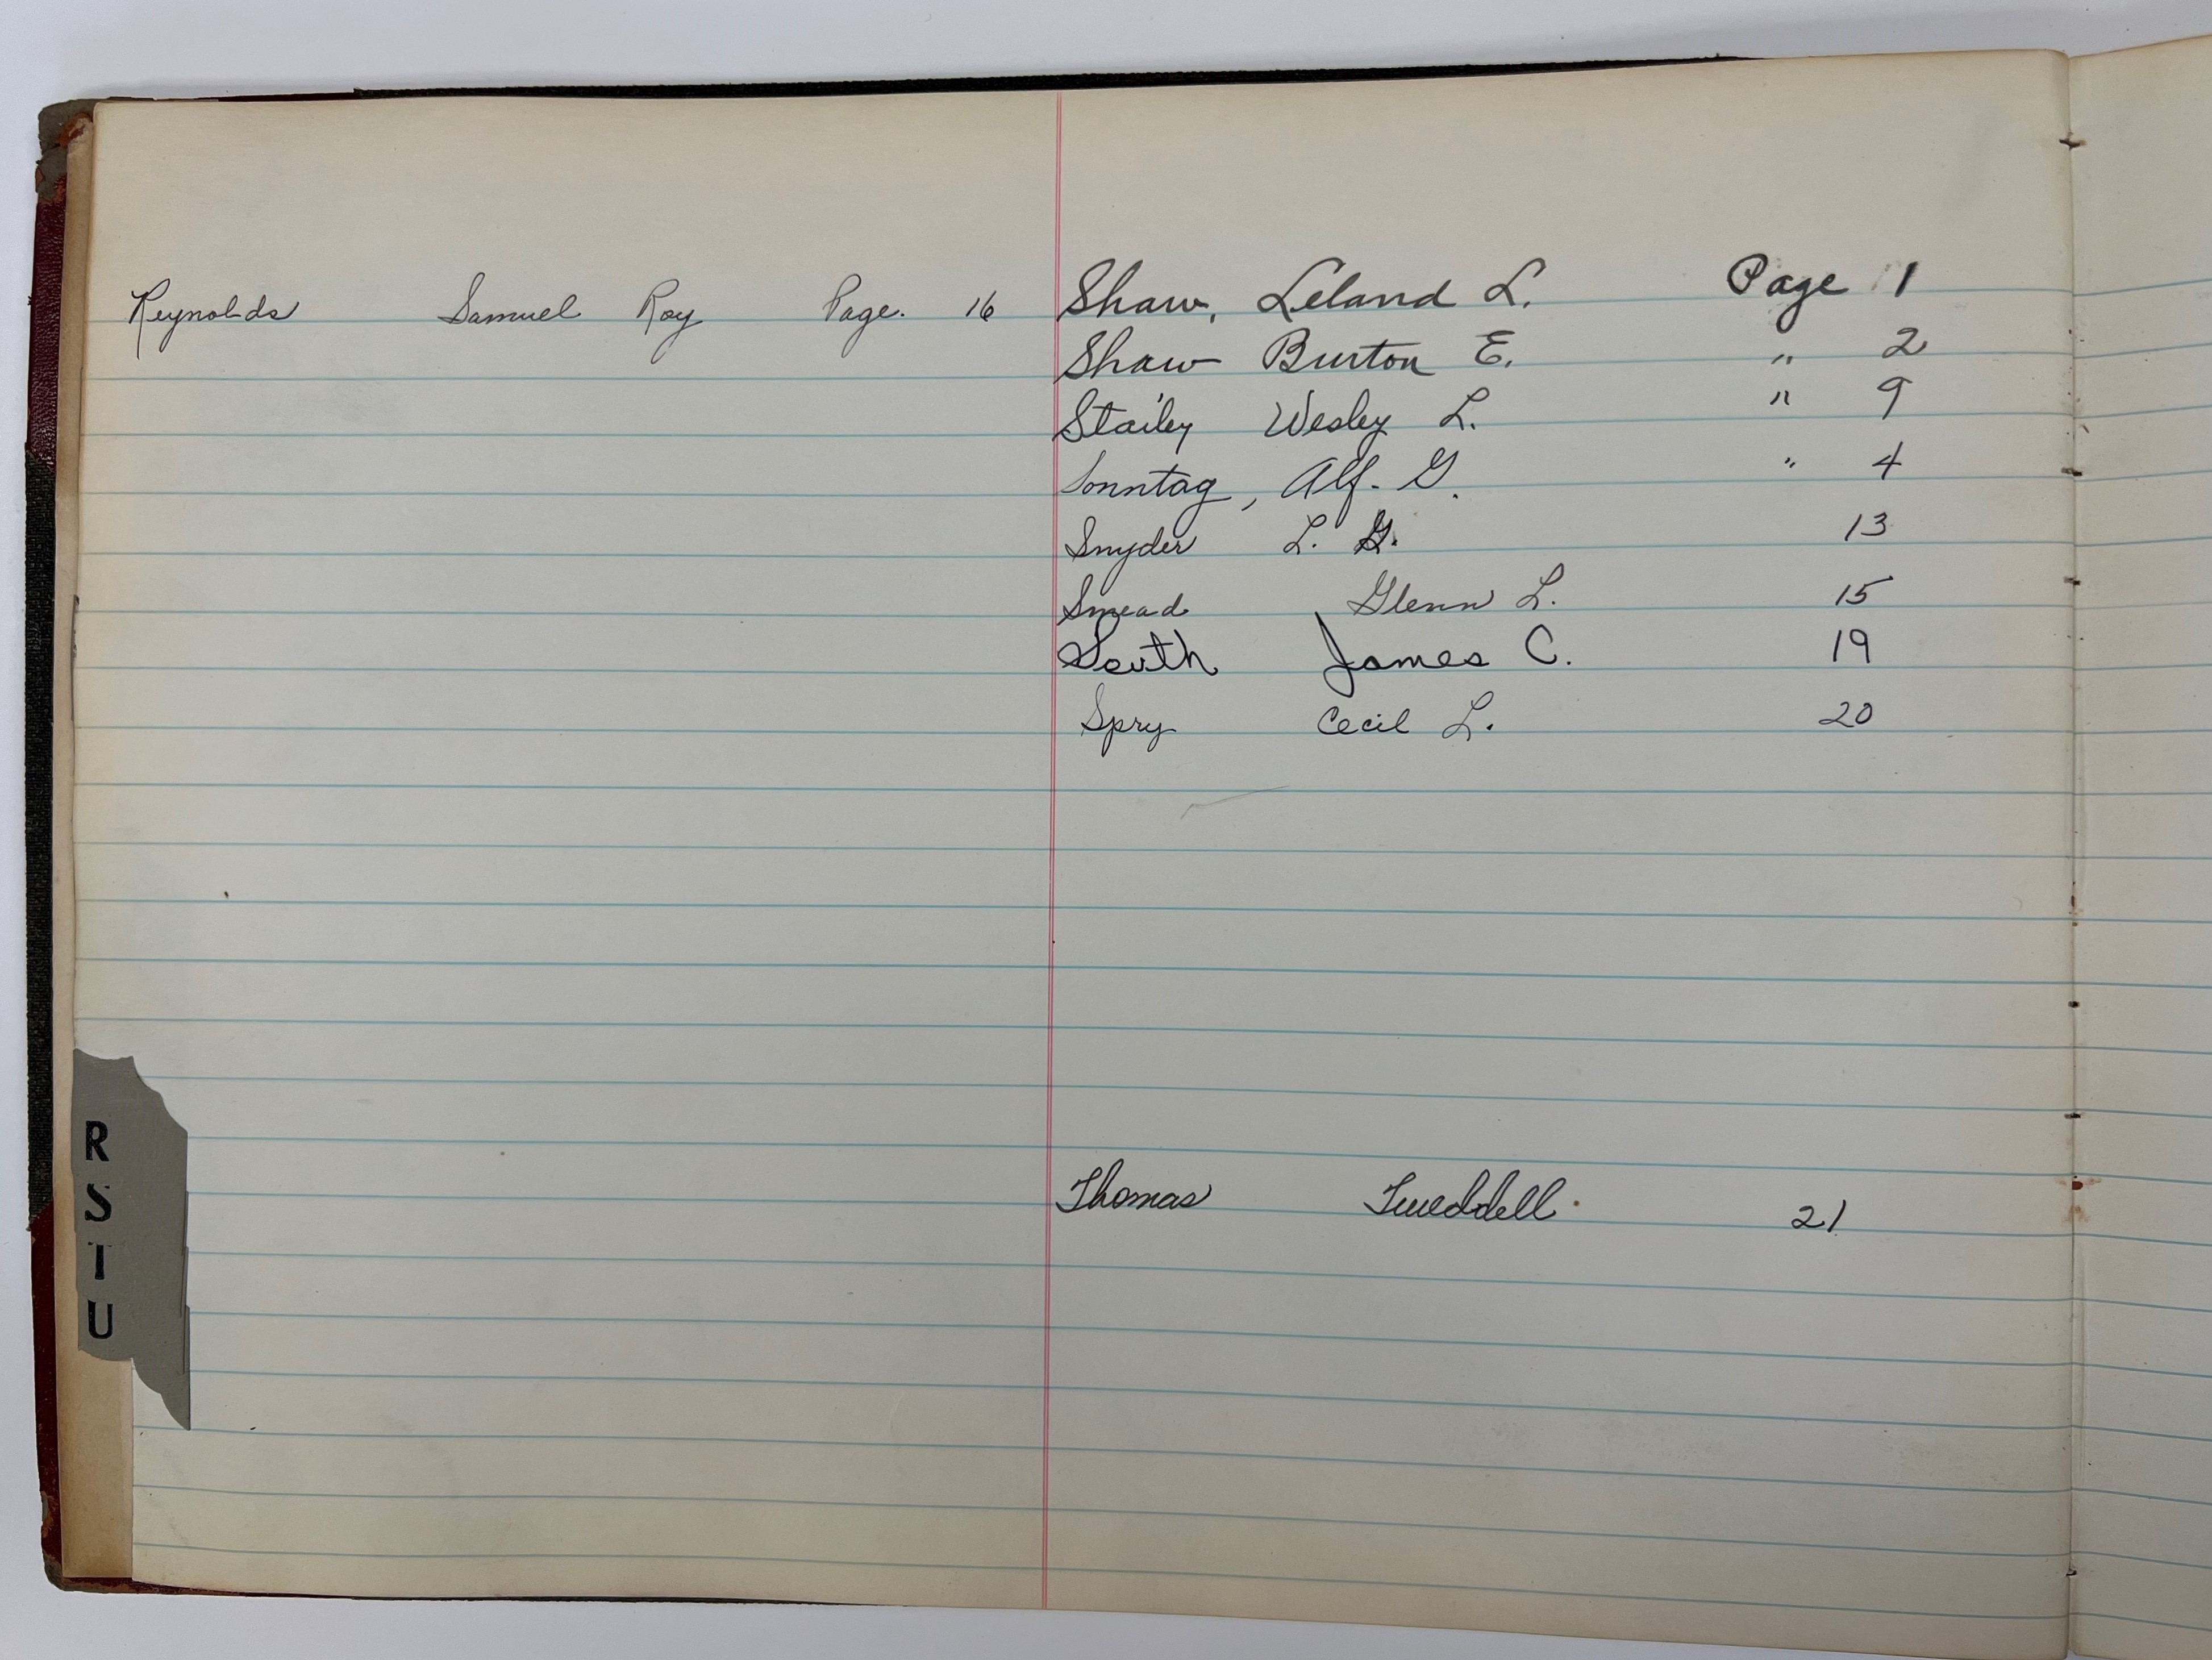 Reynolds Samuel Roy Page. 16
Shaw, Leland L. Page 1
Shaw Burton E. " 2
Stailey Wesley L. " 9
Sonntag, Alf. G. " 4
Snyder L. G. 13
Smead Glenn L. 15
South James C. 19
Spry Cecil L. 20
Thomas Tweddell. 21
R
S
T
U